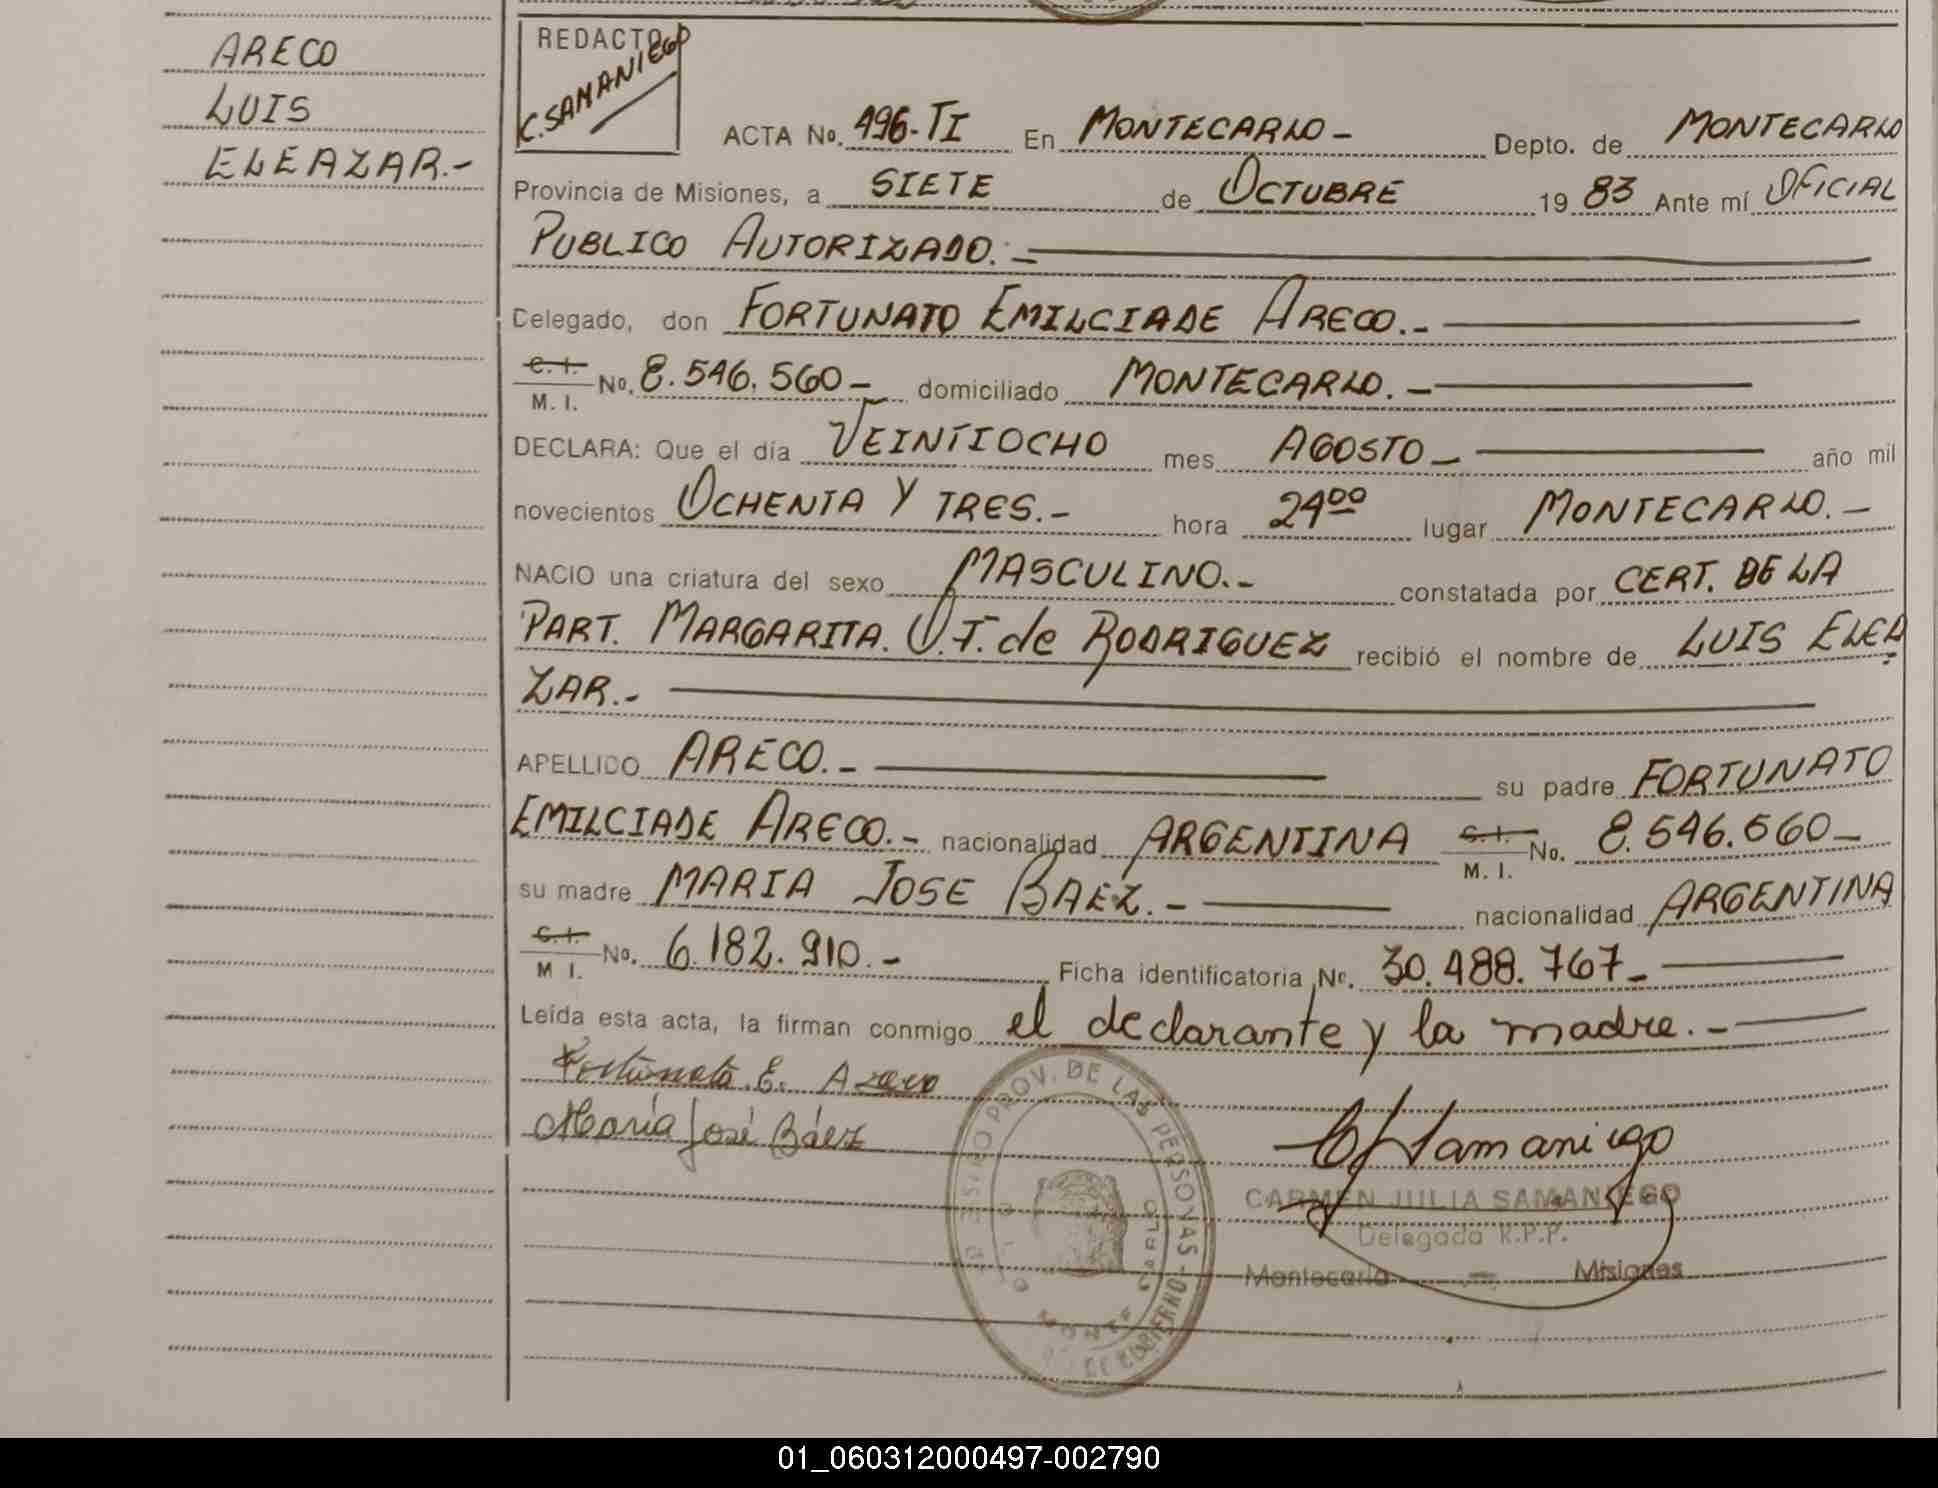 ARECO
LUIS
ELEAZAR.-
REDACTO
C. SAMANIEGO
ACTA No. 496-TI En MONTECARLO - Depto. de MONTECARLO
Provincia de Misiones, a SIETE de OCTUBRE 19 83 Ante mí OFICIAL
PUBLICO AUTORIZADO.-
Delegado, don FORTUNATO EMILCIADE ARECO.-
C. I. M. I. No. 8.546.560- domiciliado MONTECARLO.-
DECLARA: Que el día VEINTIOCHO mes AGOSTO - año mil
novecientos OCHENTA Y TRES.- hora 2400 lugar MONTECARLO.-
NACIO una criatura del sexo MASCULINO.- constatada por CERT. DE LA
PART. MARGARITA. O. T. de RODRIGUEZ recibió el nombre de LUIS ELEA
ZAR.-
APELLIDO ARECO.- su padre FORTUNATO
EMILCIADE ARECO.- nacionalidad ARGENTINA C. I. M. I. No. 8.546.560-
su madre MARIA JOSE BAEZ.- nacionalidad ARGENTINA
C. I. M I. No. 6.182.910.- Ficha identificatoria Nº. 30.488.767-
Leída esta acta, la firman conmigo el declarante y la madre.-
Fortunato E. Areco
María José Báez
PROV. DE LAS PERSONAS
DE GOBIERNO
MONTE CARLO
Samaniego
CARMEN JULIA SAMANIEGO
Delegada R.P.P.
Montecarlo - Misiones
01_060312000497-002790